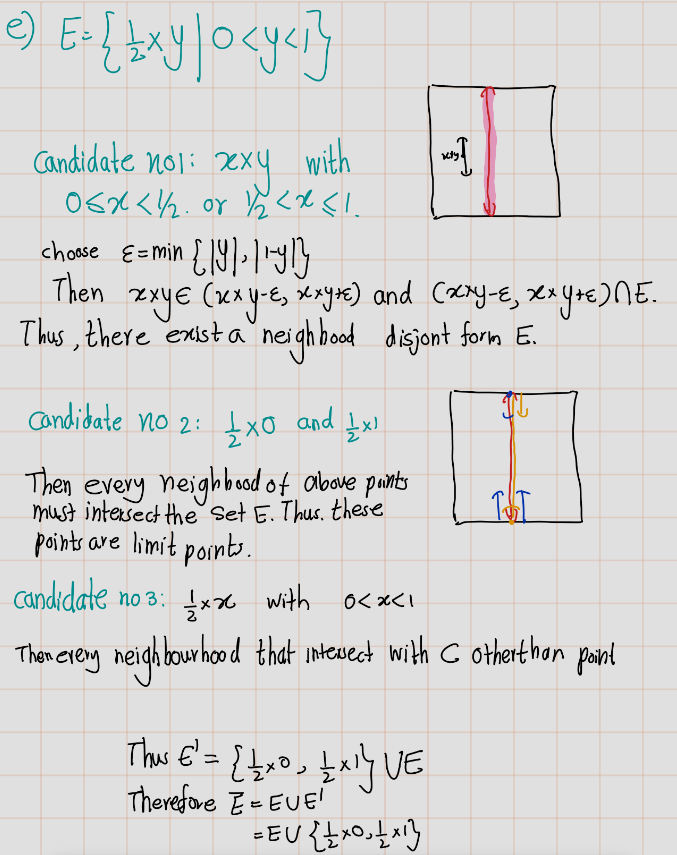 e) E = { 1/2 × y | 0 < y < 1 }
candidate no1: x×y with
0 ≤ x < 1/2. or 1/2 < x ≤ 1.
x×y
choose ε = min { |y|, |1-y| }
Then x×y ∈ (x×y-ε, x×y+ε) and (x×y-ε, x×y+ε) ∩ E.
Thus, there exist a neighbood disjont form E.
candidate no 2: 1/2 × 0 and 1/2 × 1
Then every neighbood of above points
must intersect the set E. Thus. these
points are limit points.
candidate no 3: 1/2 × x with 0 < x < 1
Then every neighbourhood that intersect with C otherthan point
Thus E' = { 1/2 × 0, 1/2 × 1 } ∪ E
Therefore E̅ = E ∪ E'
= E ∪ { 1/2 × 0, 1/2 × 1 }